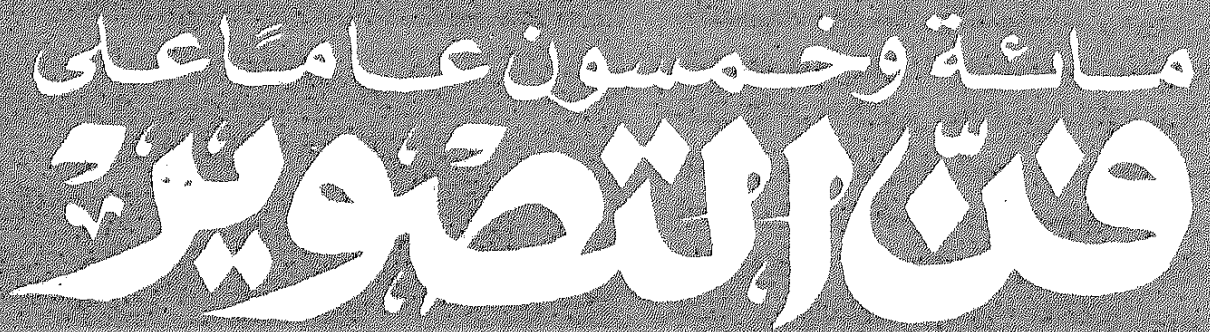 مائة وخمسون عامًا على
فنّ التصوير